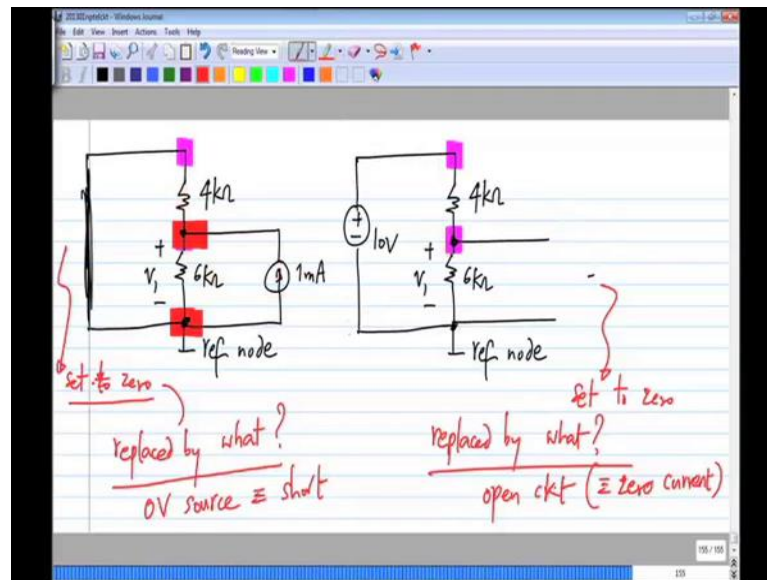 File Edit View Insert Actions Tools Help
Reading View
4kΩ
+
V₁
-
6kΩ
1mA
ref node
set to zero
replaced by what?
0V source ≡ short
+
-
10V
4kΩ
+
V₁
-
6kΩ
ref node
set to zero
replaced by what?
open ckt (≡ zero current)
155 / 155
155